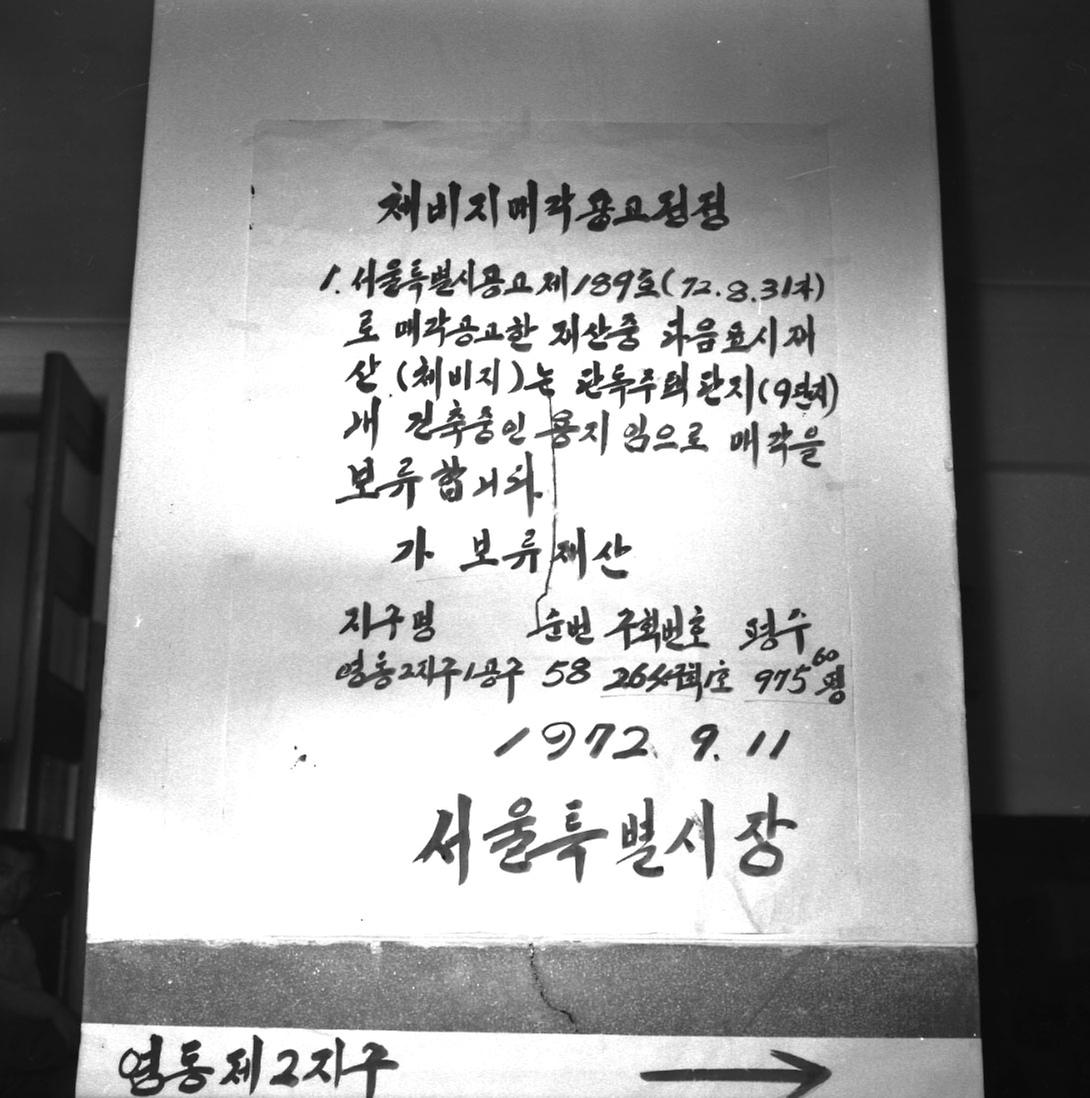 체비지매각공고정정
1. 서울특별시공고 제189호(72.8.31자)
로 매각공고한 재산중 다음표시재
산 (체비지)는 단독주택단지(9단지)
내 건축중인 용지임으로 매각을
보류합니다.
가 보류재산
지구명 순번 구획번호 평수
영동2지구1공구 58 264구획1호 975.60평
1972. 9. 11
서울특별시장
영동제2지구